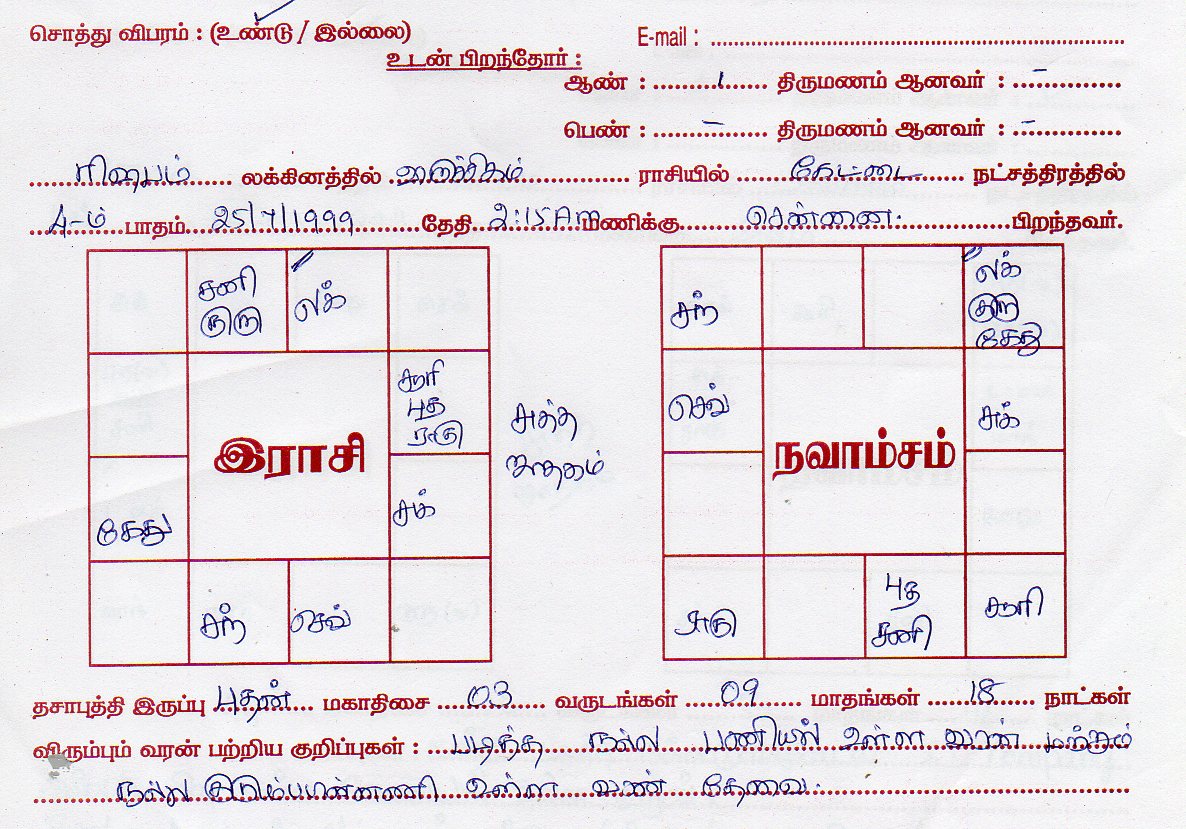 சொத்து விபரம் : (உண்டு / இல்லை)
E-mail : ........................
உடன் பிறந்தோர் :
ஆண் : ......1...... திருமணம் ஆனவர் : ..–..........
பெண் : ......–...... திருமணம் ஆனவர் : ..–..........
ரிஷபம் லக்கினத்தில் விருச்சிகம் ராசியில் கேட்டை நட்சத்திரத்தில்
4-ம் பாதம் 25/7/1999 தேதி 2:15 AM மணிக்கு சென்னை. பிறந்தவர்.
சனி
குரு
லக்
சூரி
புத
ராகு
சுக்
கேது
சந்
செவ்
இராசி
சுத்த
ஜாதகம்
சந்
லக்
குரு
கேது
செவ்
சுக்
நவாம்சம்
ராகு
புத
சனி
சூரி
தசாபுத்தி இருப்பு புதன் மகாதிசை 03 வருடங்கள் 09 மாதங்கள் 18 நாட்கள்
விரும்பும் வரன் பற்றிய குறிப்புகள் : படித்த நல்ல பணியில் உள்ள வரன் மற்றும்
நல்ல குடும்பபின்னணி உள்ள வரன் தேவை.